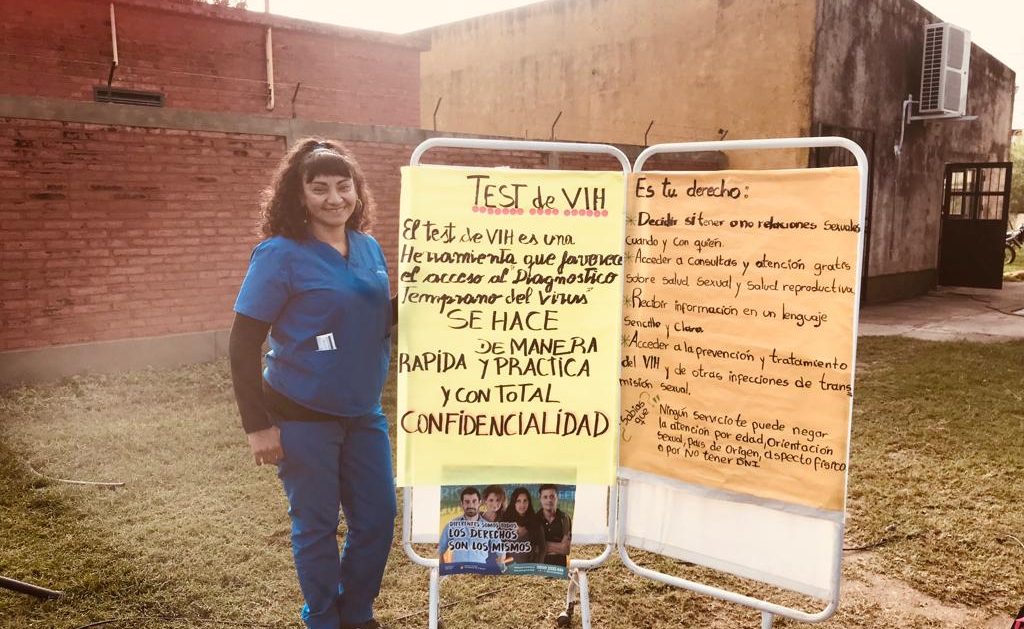 TEST de VIH
El test de VIH es una
Herramienta que favorece
el acceso al "Diagnostico
Temprano del Virus"
SE HACE
DE MANERA
RAPIDA Y PRACTICA
Y CON TOTAL
CONFIDENCIALIDAD
DIFERENTES SOMOS TODOS
LOS DERECHOS
SON LOS MISMOS
Es tu derecho:
*Decidir si tener o no relaciones sexuales
Cuando y con quien.
*Acceder a consultas y atención gratis
sobre salud sexual y salud reproductiva
*Recibir información en un lenguaje
Sencillo y Claro
*Acceder a la prevención y tratamiento
del VIH y de otras infecciones de trans
misión sexual.
¿Sabias que?
"Ningún servicio te puede negar
la atención por edad, Orientación
Sexual, país de Origen, aspecto físico
o por NO tener DNI